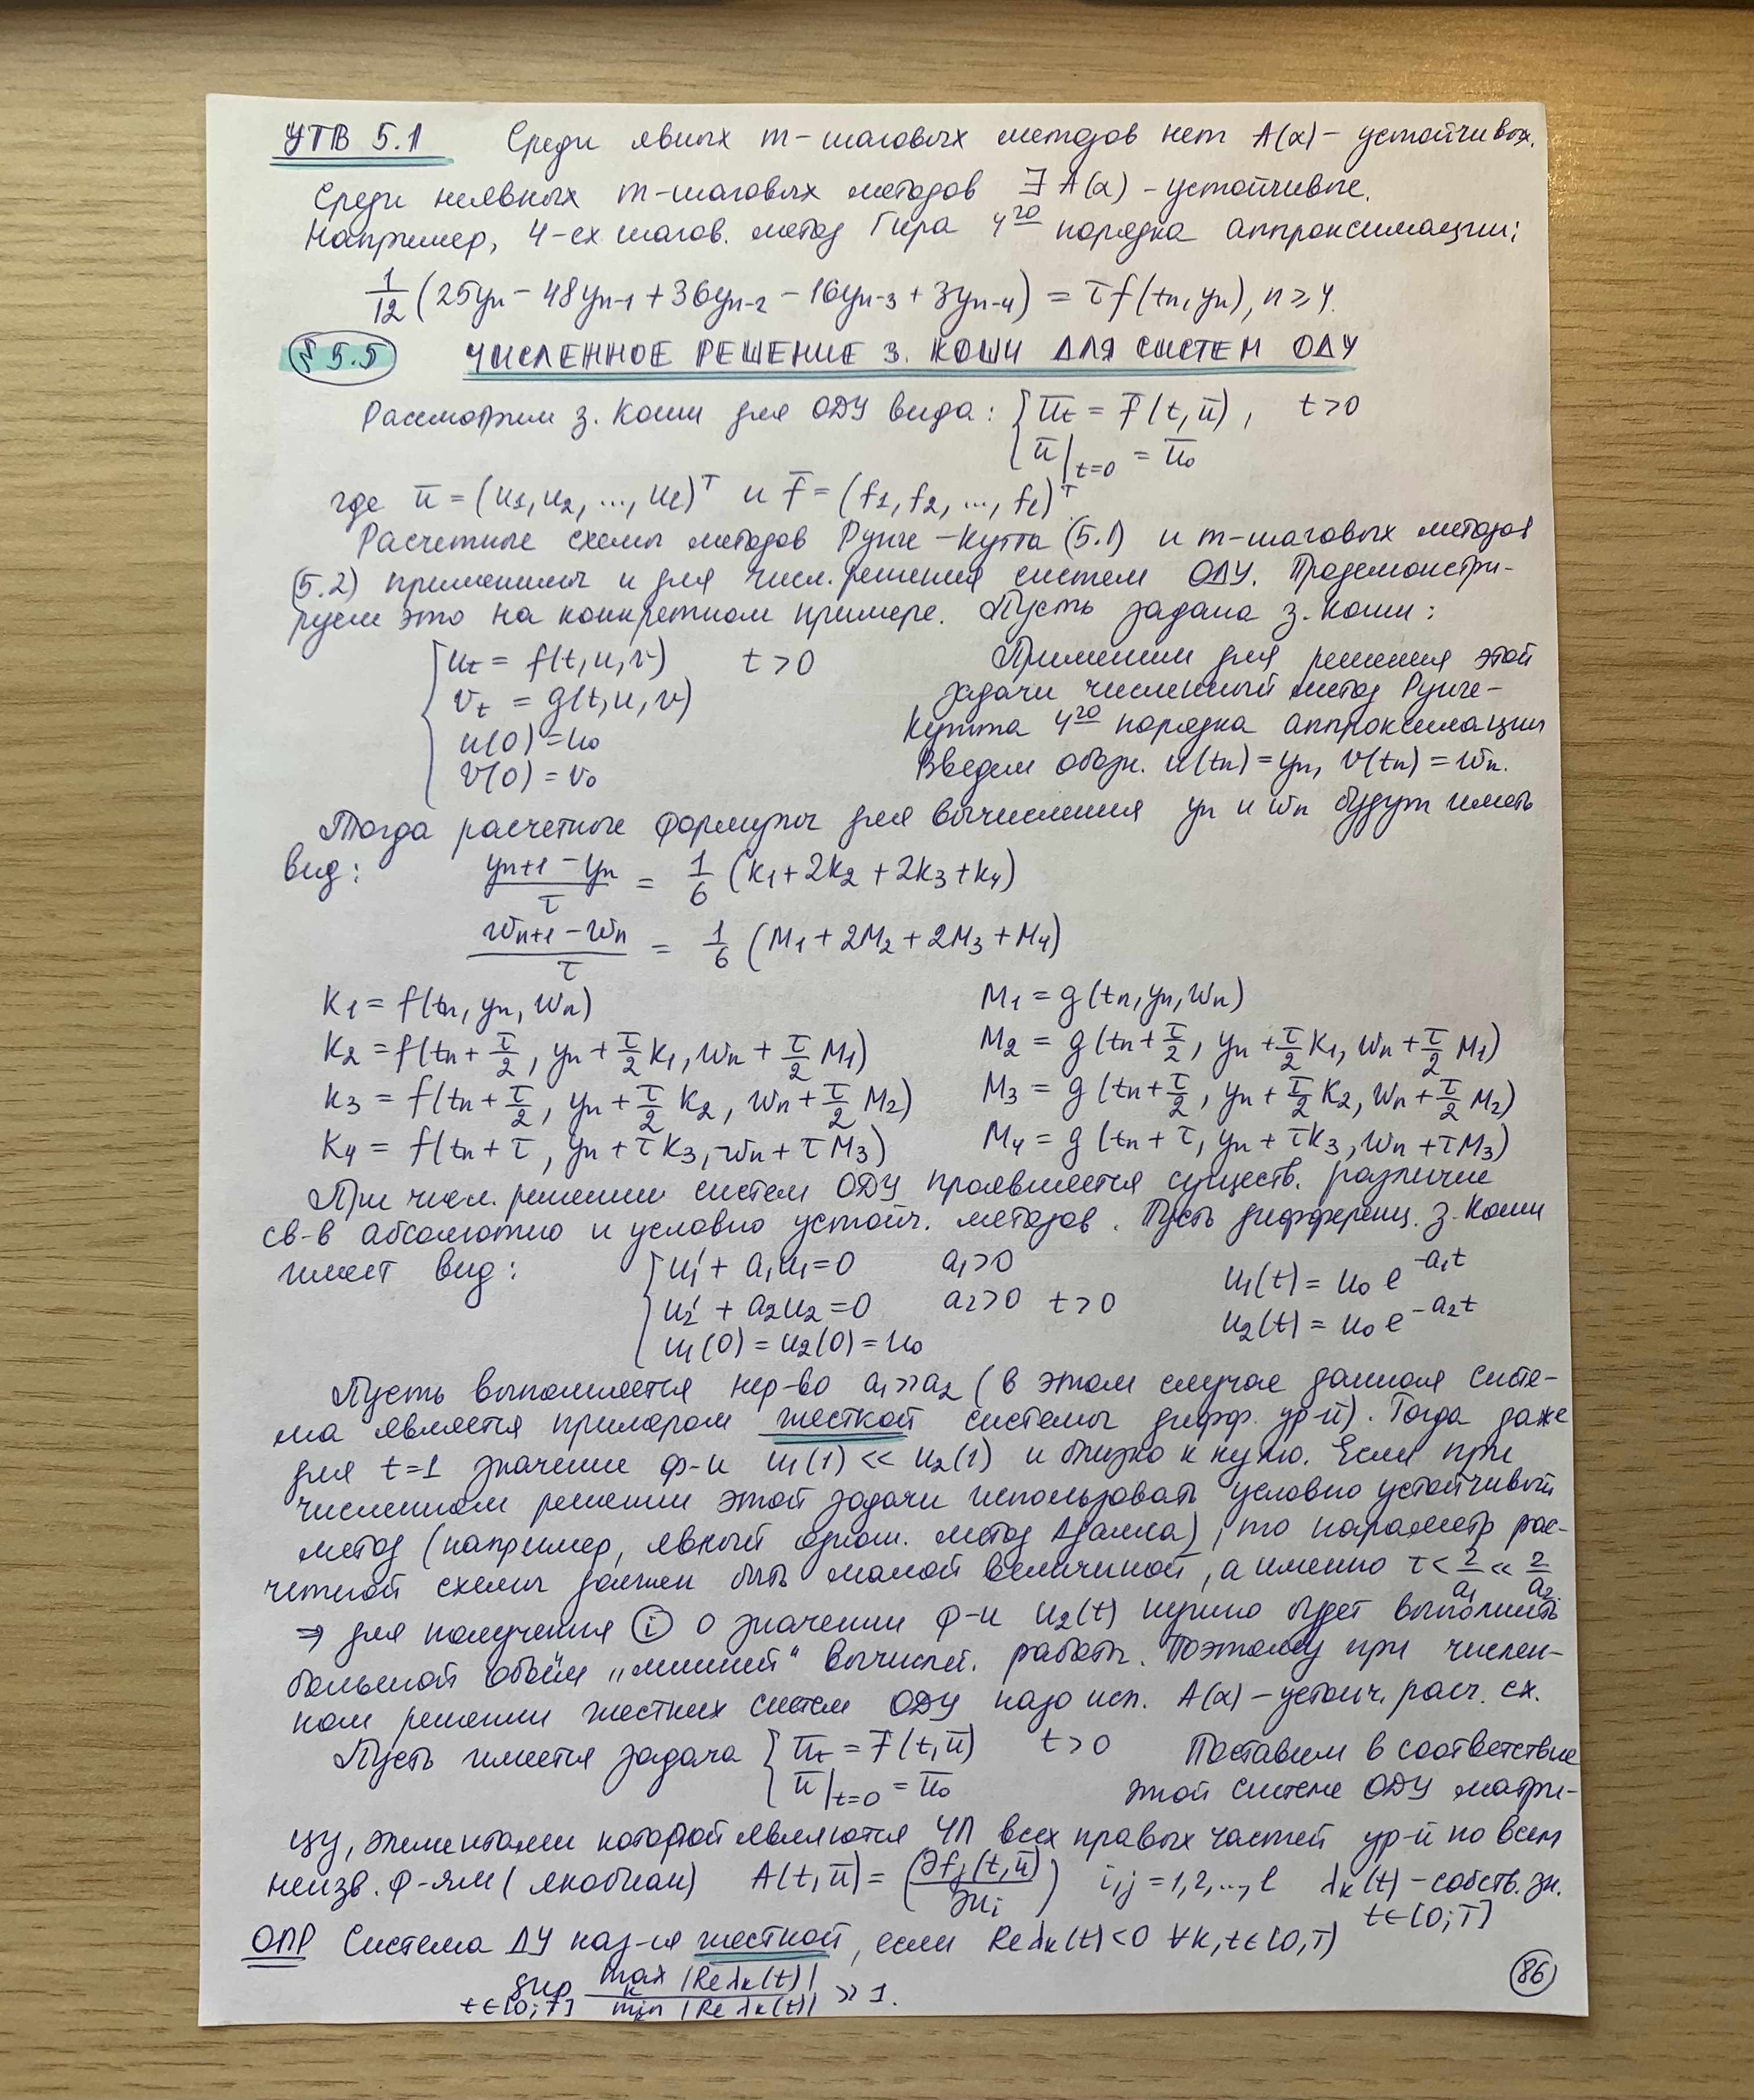 УТВ 5.1 Среди явных m-шаговых методов нет A(α)-устойчивых.
Среди неявных m-шаговых методов ∃ A(α)-устойчивые.
Например, 4-ех шагов. метод Гира 4го порядка аппроксимации:
1/12 (25yn - 48yn-1 + 36yn-2 - 16yn-3 + 3yn-4) = τf(tn, yn), n ≥ 4.
§ 5.5 ЧИСЛЕННОЕ РЕШЕНИЕ З. КОШИ ДЛЯ СИСТЕМ ОДУ
Рассмотрим з. Коши для ОДУ вида: { ūt = f̄(t, ū), t>0
ū|t=0 = ū0
где ū = (u1, u2, ..., ul)ᵀ и f̄ = (f1, f2, ..., fl)ᵀ.
Расчетные схемы методов Рунге-Кутта (5.1) и m-шаговых методов
(5.2) применимы и для числ. решения систем ОДУ. Продемонстри-
руем это на конкретном примере. Пусть задана з. Коши:
{ ut = f(t, u, v) t>0 Применим для решения этой
vt = g(t, u, v) задачи численный метод Рунге-
u(0) = u0 Кутта 4го порядка аппроксимации
v(0) = v0 Введем обозн. u(tn) = yn, v(tn) = wn.
Тогда расчетные формулы для вычисления yn и wn будут иметь
вид: (yn+1 - yn)/τ = 1/6 (k1 + 2k2 + 2k3 + k4)
(wn+1 - wn)/τ = 1/6 (M1 + 2M2 + 2M3 + M4)
K1 = f(tn, yn, wn) M1 = g(tn, yn, wn)
K2 = f(tn + τ/2, yn + τ/2 K1, wn + τ/2 M1) M2 = g(tn + τ/2, yn + τ/2 K1, wn + τ/2 M1)
K3 = f(tn + τ/2, yn + τ/2 K2, wn + τ/2 M2) M3 = g(tn + τ/2, yn + τ/2 K2, wn + τ/2 M2)
K4 = f(tn + τ, yn + τK3, wn + τM3) M4 = g(tn + τ, yn + τK3, wn + τM3)
При числ. решении систем ОДУ проявляется существ. различие
св-в абсолютно и условно устойч. методов. Пусть дифференц. з. Коши
имеет вид: { u1' + a1u1 = 0 a1>0 u1(t) = u0 e^(-a1t)
u2' + a2u2 = 0 a2>0 t>0 u2(t) = u0 e^(-a2t)
u1(0) = u2(0) = u0
Пусть выполняется нер-во a1 >> a2 (в этом случае данная систе-
ма является примером жесткой системы дифф. ур-й). Тогда даже
для t=1 значение ф-и u1(1) << u2(1) и близко к нулю. Если при
численном решении этой задачи использовать условно устойчивый
метод (например, явный одном. метод Адамса), то параметр рас-
четной схемы должен быть малой величиной, а именно τ < 2/a1 << 2/a2
⇒ для получения ⓘ о значении ф-и u2(t) нужно будет выполнить
большой объём „лишней" вычислит. работы. Поэтому при числен-
ном решении жестких систем ОДУ надо исп. A(α)-устойч. расч. сх.
Пусть имеется задача { ūt = f̄(t, ū) t>0 Поставим в соответствие
ū|t=0 = ū0 этой системе ОДУ матри-
цу, элементами которой являются ЧП всех правых частей ур-й по всем
неизв. ф-ям (якобиан) A(t, ū) = (∂fj(t, ū)/∂ui) i,j = 1,2,...,l λk(t) - собств. зн.
t∈[0;T]
ОПР Система ДУ наз-ся жесткой, если Reλk(t)<0 ∀k, t∈[0,T)
sup t∈[0;T] max k |Re λk(t)| / min k |Re λk(t)| >> 1.
86